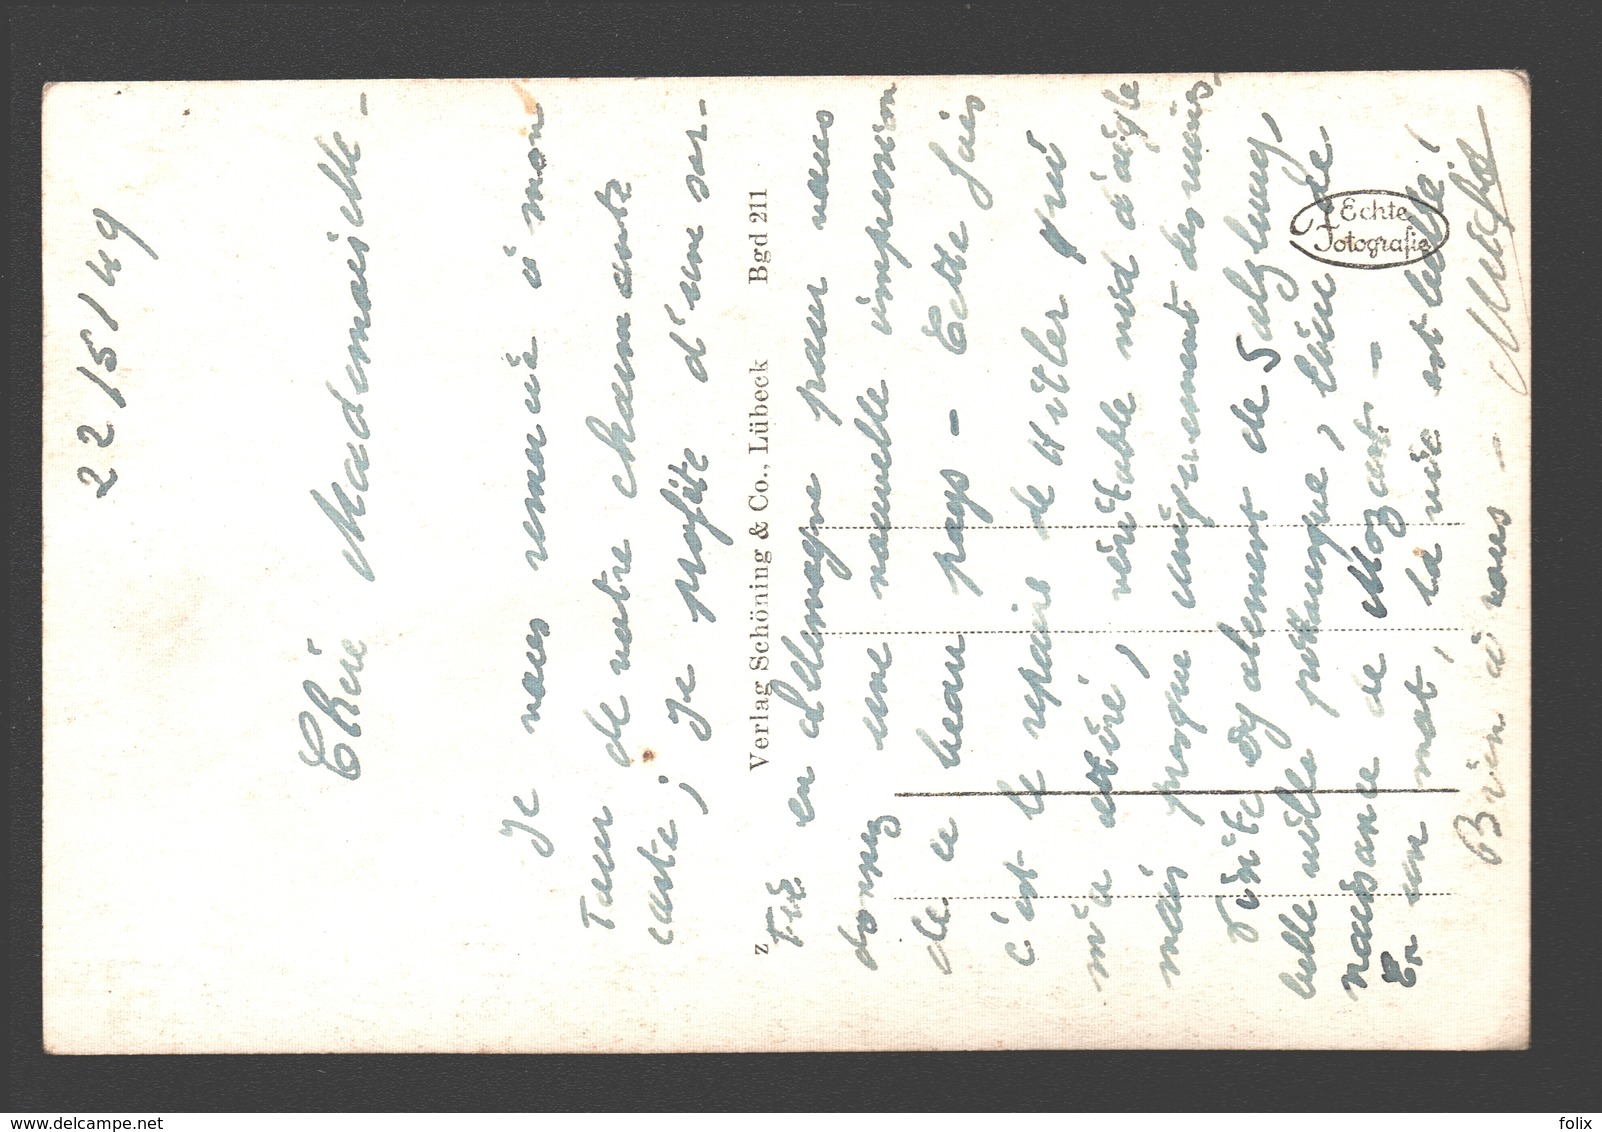 22/5/49
Chère Mademoiselle -
Je vous remercie à mon
Tour de votre charmante
carte, je profite d'une sor-
Tie en Allemagne pour vous
donnez une nouvelle impression
de ce beau pays - Cette fois
c'est le repaire de Hitler qui
m'a attiré, véritable nid d'aigle
mais presque uniquement des murs,
Visite également de Salzburg,
belle ville pittoresque, lieu de
naissance de Mozart -
En un mot, la vie est belle!
Bien à vous -
z Verlag Schöning & Co., Lübeck Bgd 211
Echte
Fotografie
delcampe.net
folix